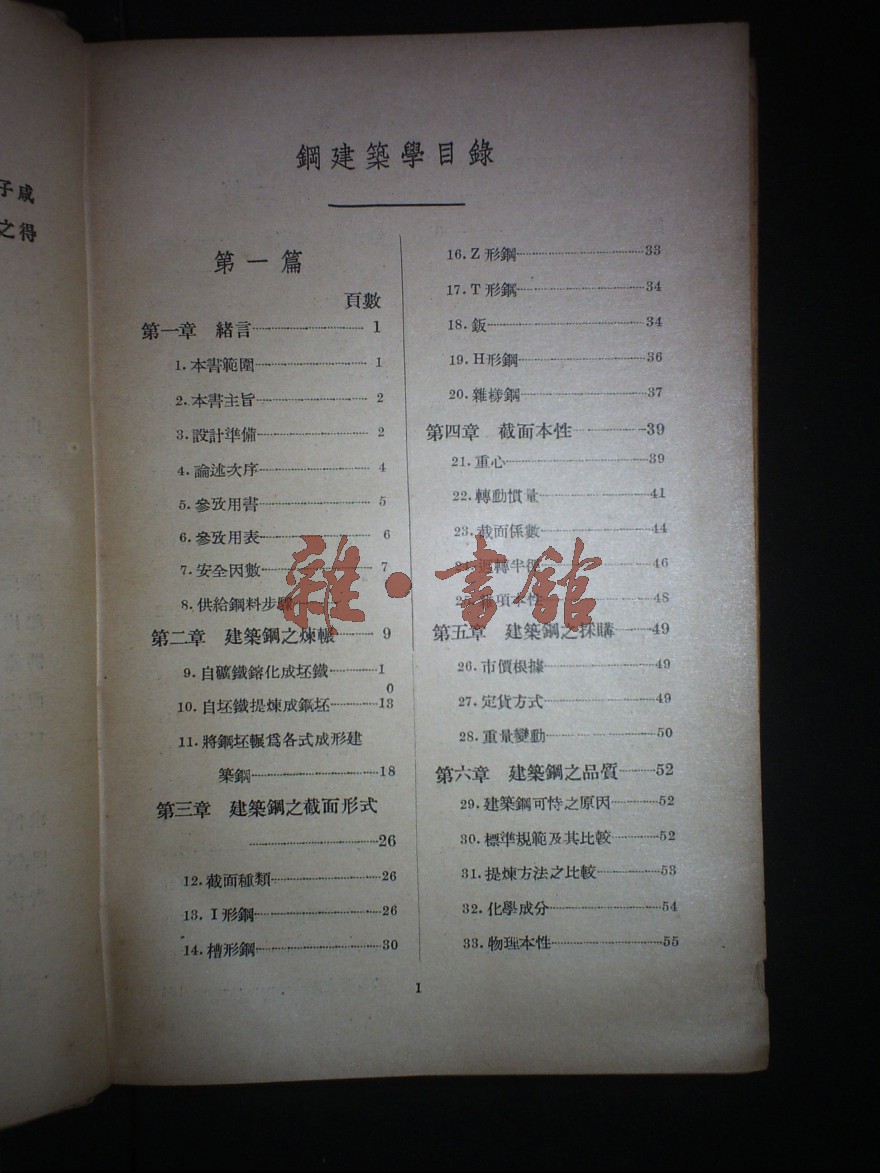 子咸
之得
鋼建築學目錄
第一篇
頁數
第一章 緒言 1
1. 本書範圍 1
2. 本書主旨 2
3. 設計準備 2
4. 論述次序 4
5. 參攷用書 5
6. 參攷用表 6
7. 安全因數 7
8. 供給鋼料步驟
第二章 建築鋼之煉輾 9
9. 自礦鐵鎔化成坯鐵 1
0
10. 自坯鐵提煉成鋼坯 13
11. 將鋼坯輾爲各式成形建
築鋼 18
第三章 建築鋼之截面形式
26
12. 截面種類 26
13. I 形鋼 26
14. 槽形鋼 30
16. Z 形鋼 33
17. T 形鋼 34
18. 鈑 34
19. H形鋼 36
20. 雜樣鋼 37
第四章 截面本性 39
21. 重心 39
22. 轉動慣量 41
23. 截面係數 44
24. 迴轉半徑 46
25. 雜項本性 48
第五章 建築鋼之採購 49
26. 市價根據 49
27. 定貨方式 49
28. 重量變動 50
第六章 建築鋼之品質 52
29. 建築鋼可恃之原因 52
30. 標準規範及其比較 52
31. 提煉方法之比較 53
32. 化學成分 54
33. 物理本性 55
1
雜·書館